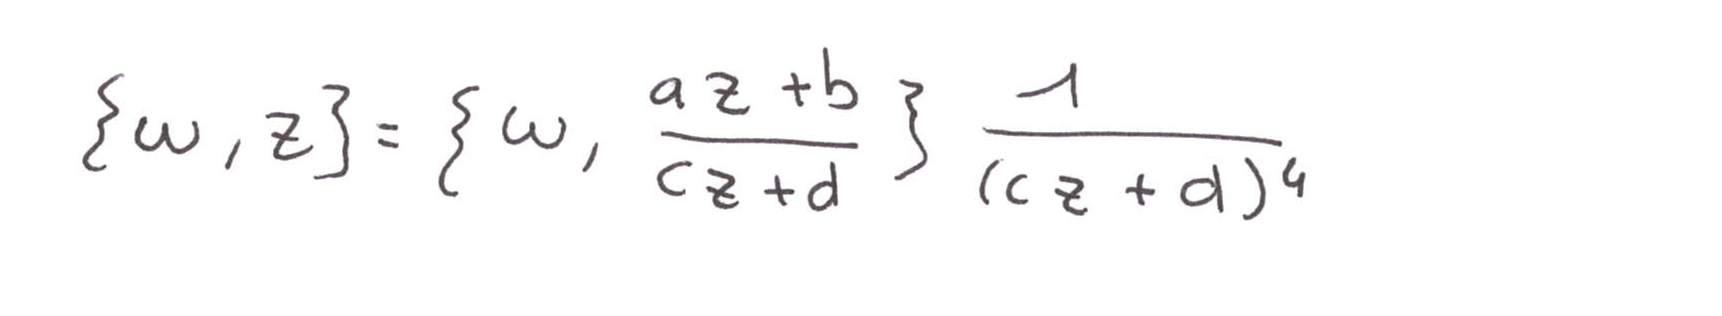 {w, z} = {w, \frac{az+b}{cz+d}} \frac{1}{(cz+d)^4}